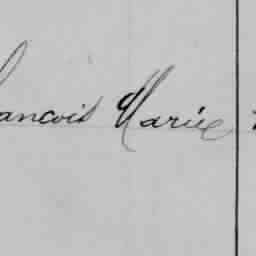 rancois Marie